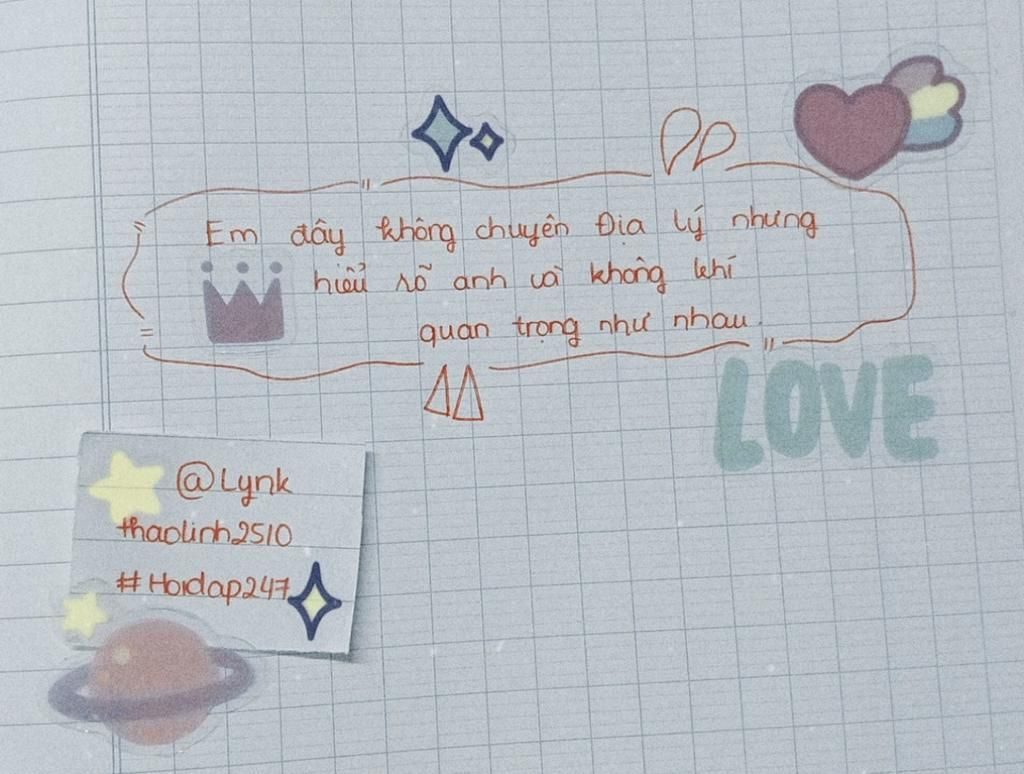 Em đây không chuyên Địa lý nhưng
hiểu rõ anh và không khí
quan trọng như nhau.
LOVE
@Lynk
thaolinh2510
#Hoidap247